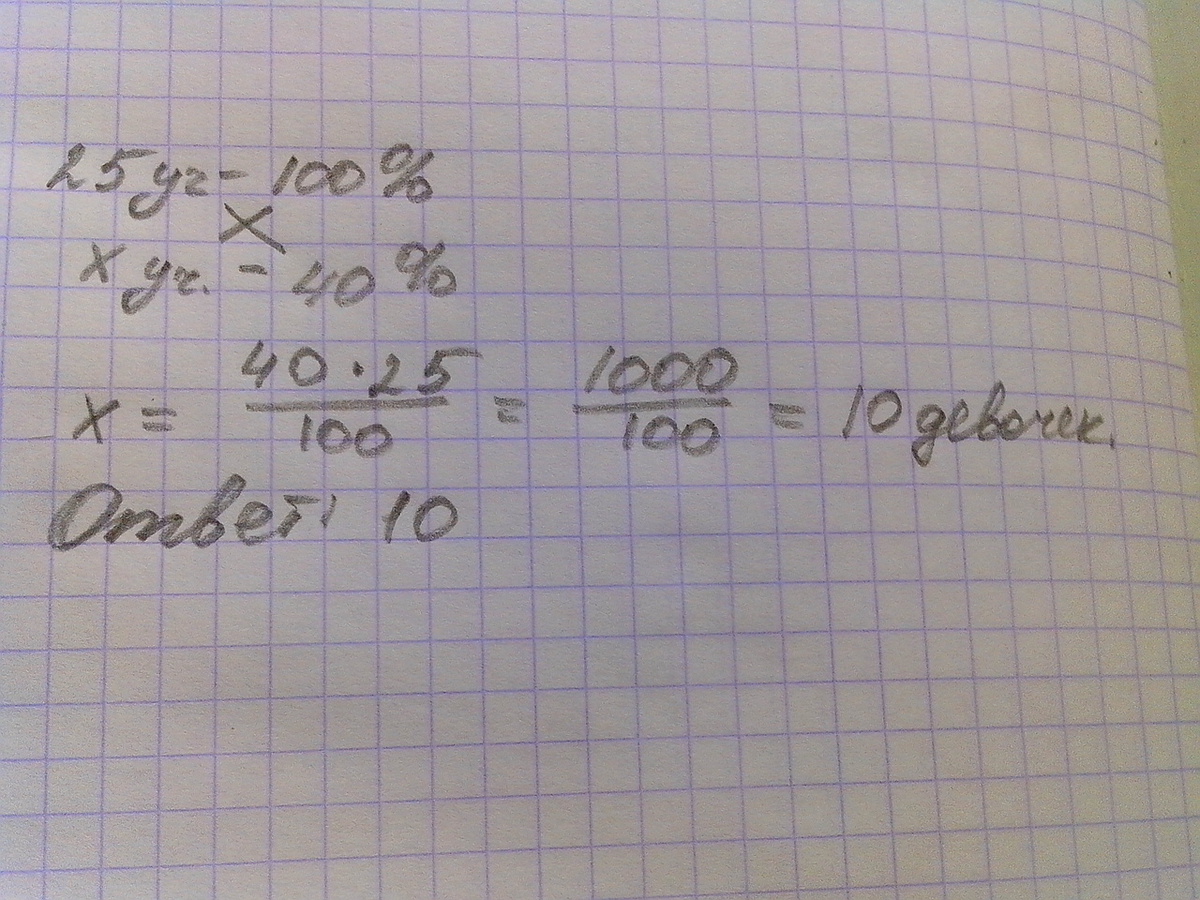 25 уч - 100%
х уч. - 40%
х = 40 · 25 / 100 = 1000 / 100 = 10 девочек.
Ответ: 10